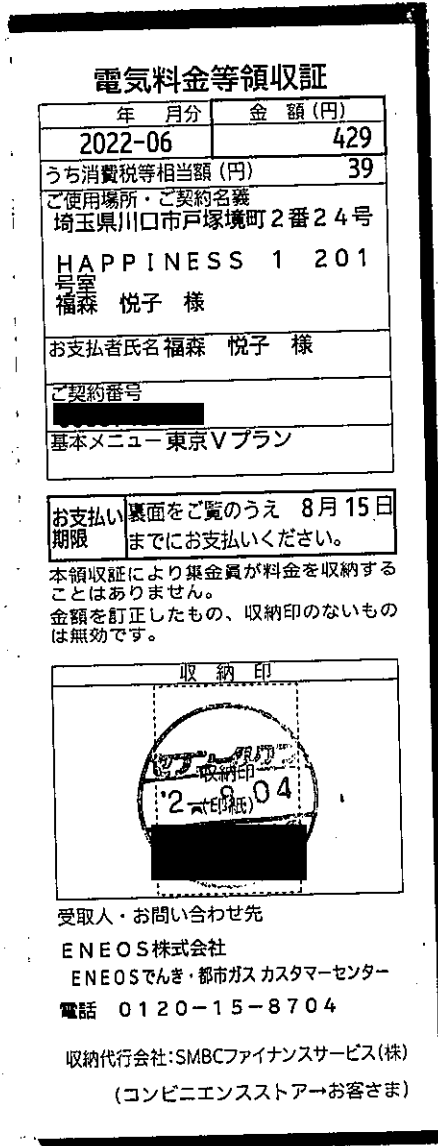 電気料金等領収証
年 月分 金 額(円)
2022-06 429
うち消費税等相当額(円) 39
ご使用場所・ご契約名義
埼玉県川口市戸塚境町2番24号
HAPPINESS 1 201
号室
福森 悦子 様
お支払者氏名 福森 悦子 様
ご契約番号
基本メニュー 東京Vプラン
お支払い期限
裏面をご覧のうえ 8月15日
までにお支払いください。
本領収証により集金員が料金を収納する
ことはありません。
金額を訂正したもの、収納印のないもの
は無効です。
収 納 印
収納印
(印紙)
受取人・お問い合わせ先
ENEOS株式会社
ENEOSでんき・都市ガス カスタマーセンター
電話 0120-15-8704
収納代行会社:SMBCファイナンスサービス(株)
(コンビニエンスストア→お客さま)